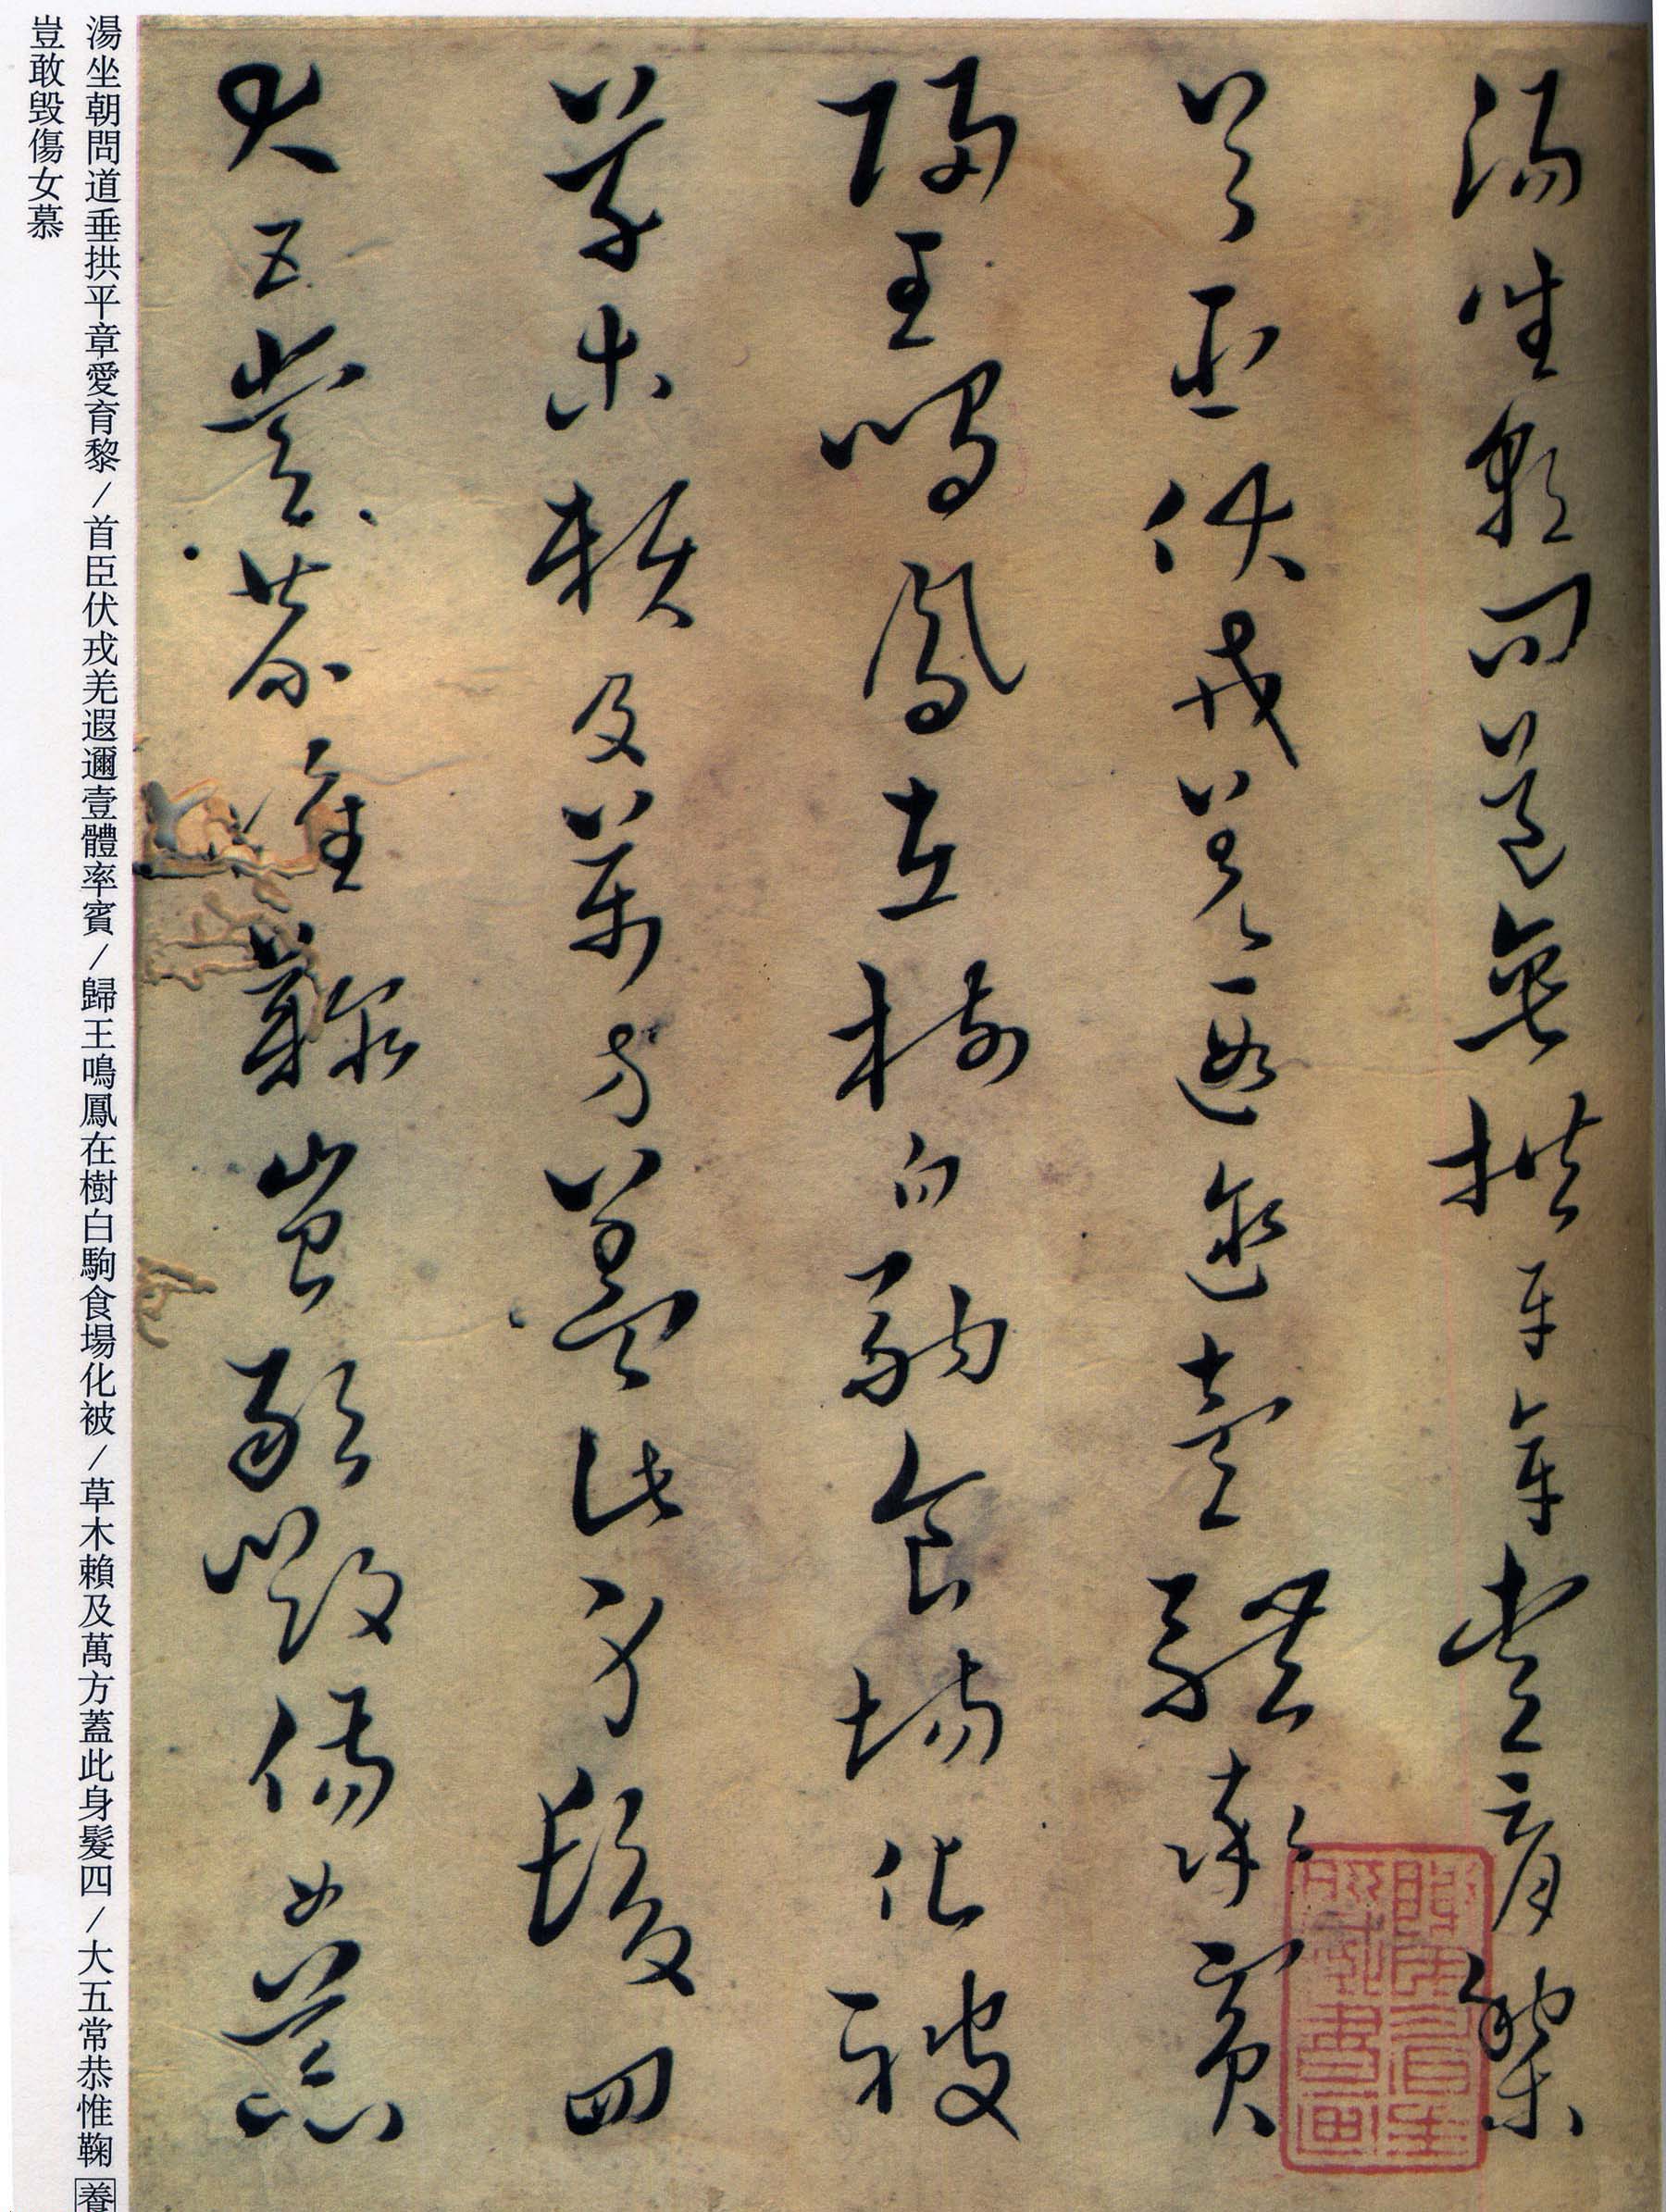 湯坐朝問道垂拱平章愛育黎
首臣伏戎羌遐邇壹體率賓
歸王鳴鳳在樹白駒食場化被
草木賴及萬方蓋此身髮四
大五常恭惟鞠豈敢毀傷女慕
湯坐朝問道垂拱平章愛育黎/首臣伏戎羌遐邇壹體率賓/歸王鳴鳳在樹白駒食場化被/草木賴及萬方蓋此身髮四/大五常恭惟鞠養
豈敢毀傷女慕